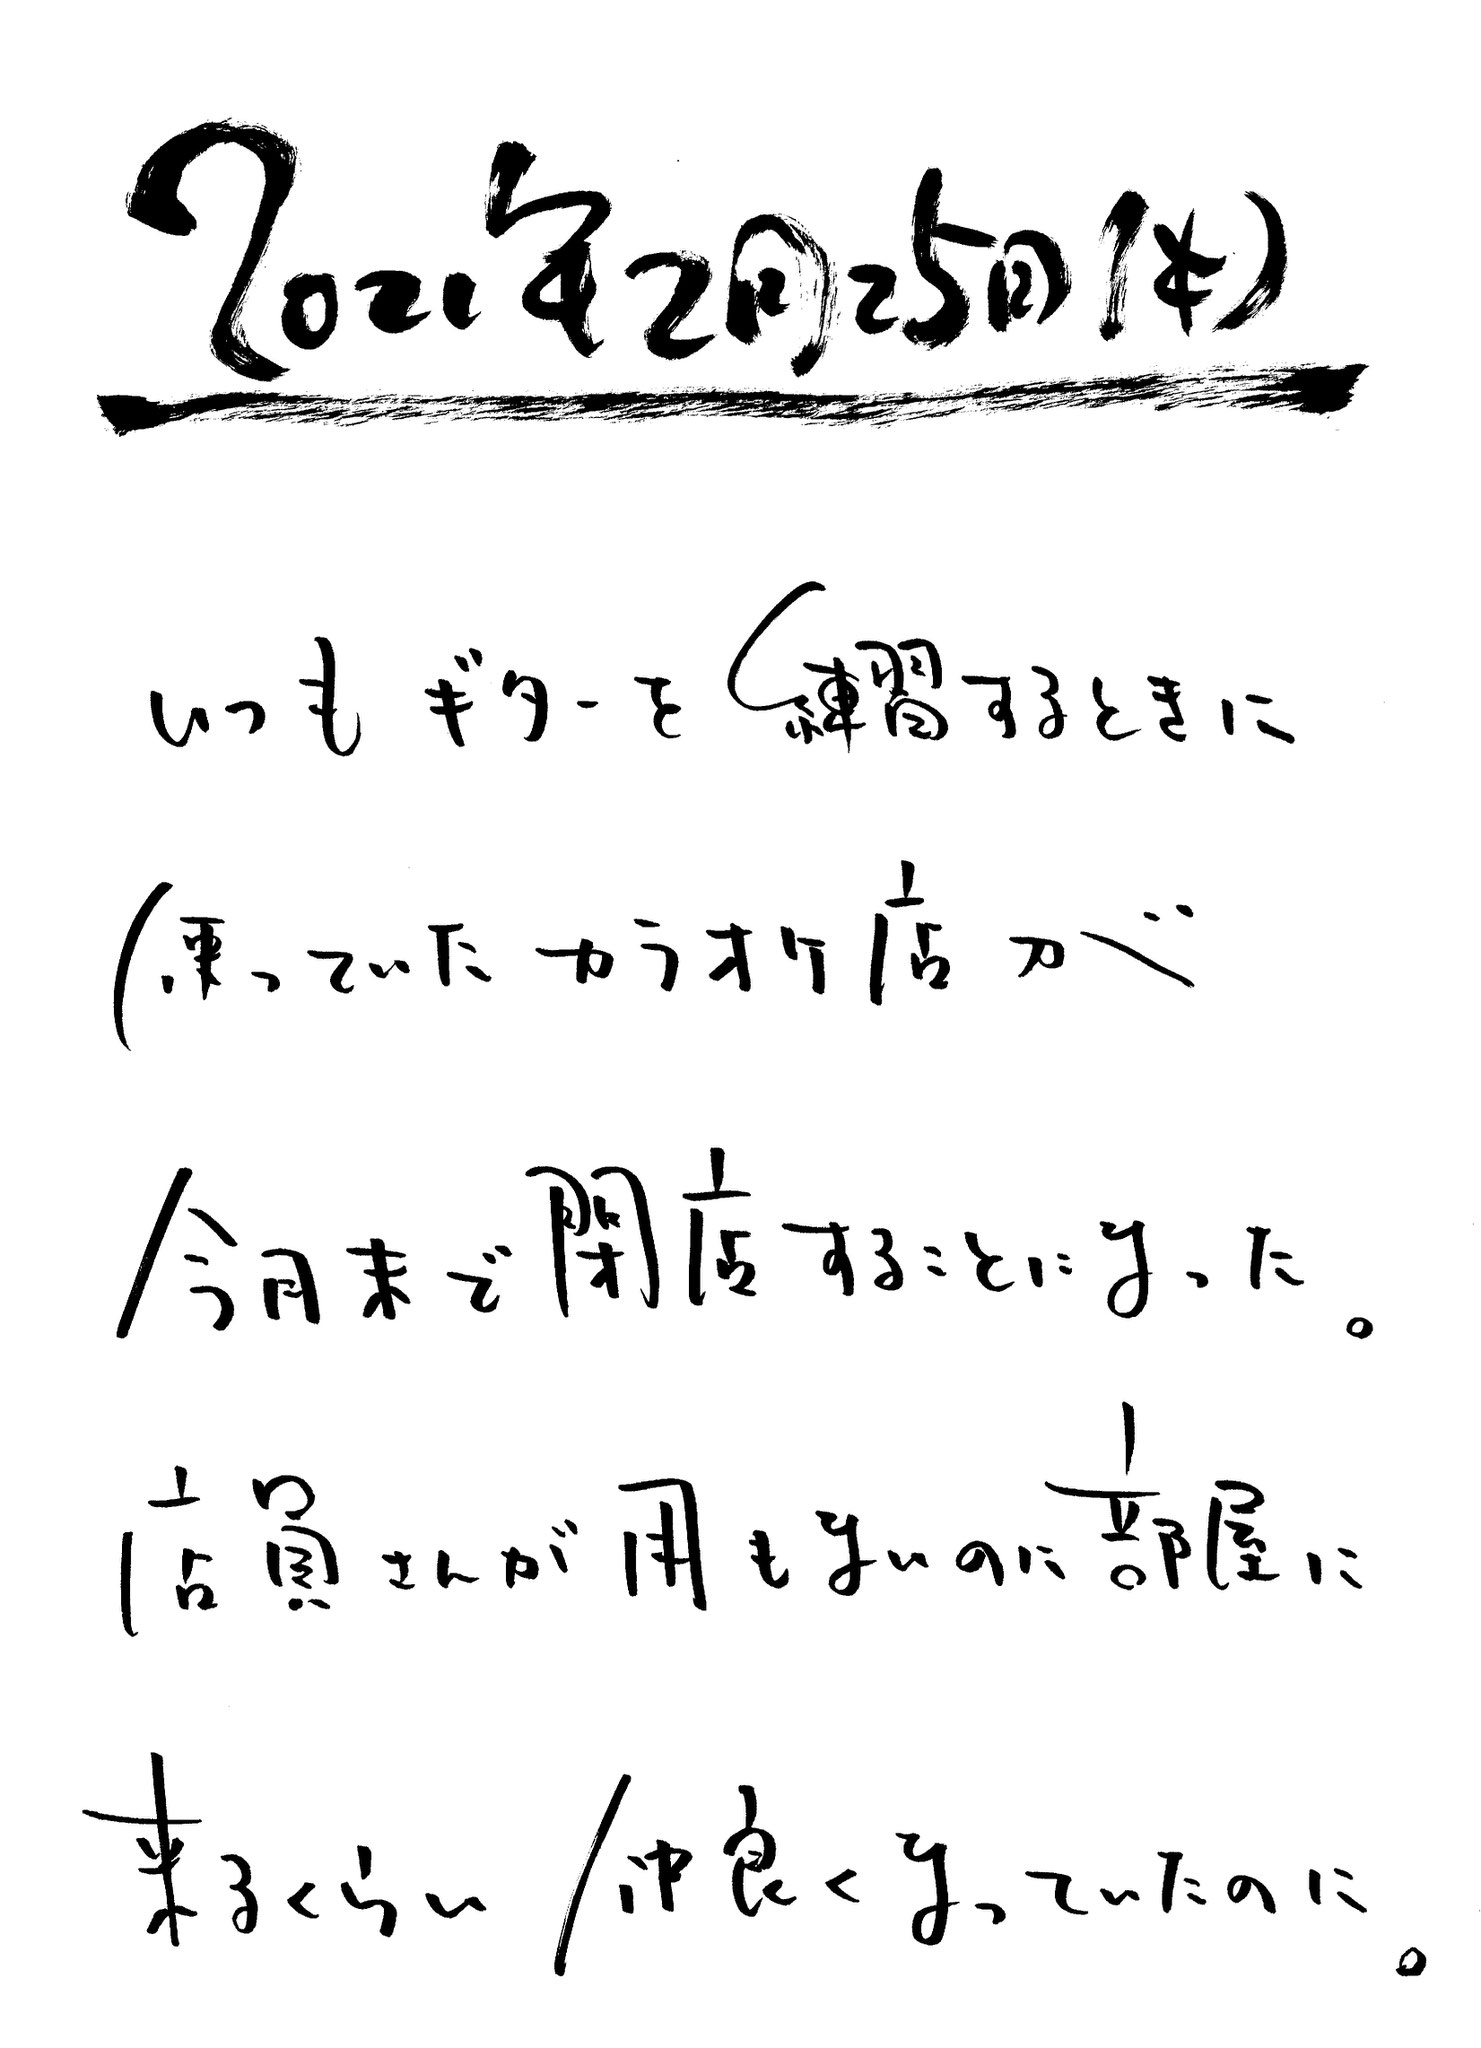 2021年2月25日(木)
いつもギターを練習するときに
使っていたカラオケ店が
今月末で閉店することになった。
店員さんが用もないのに部屋に
来るくらい仲良くなっていたのに。